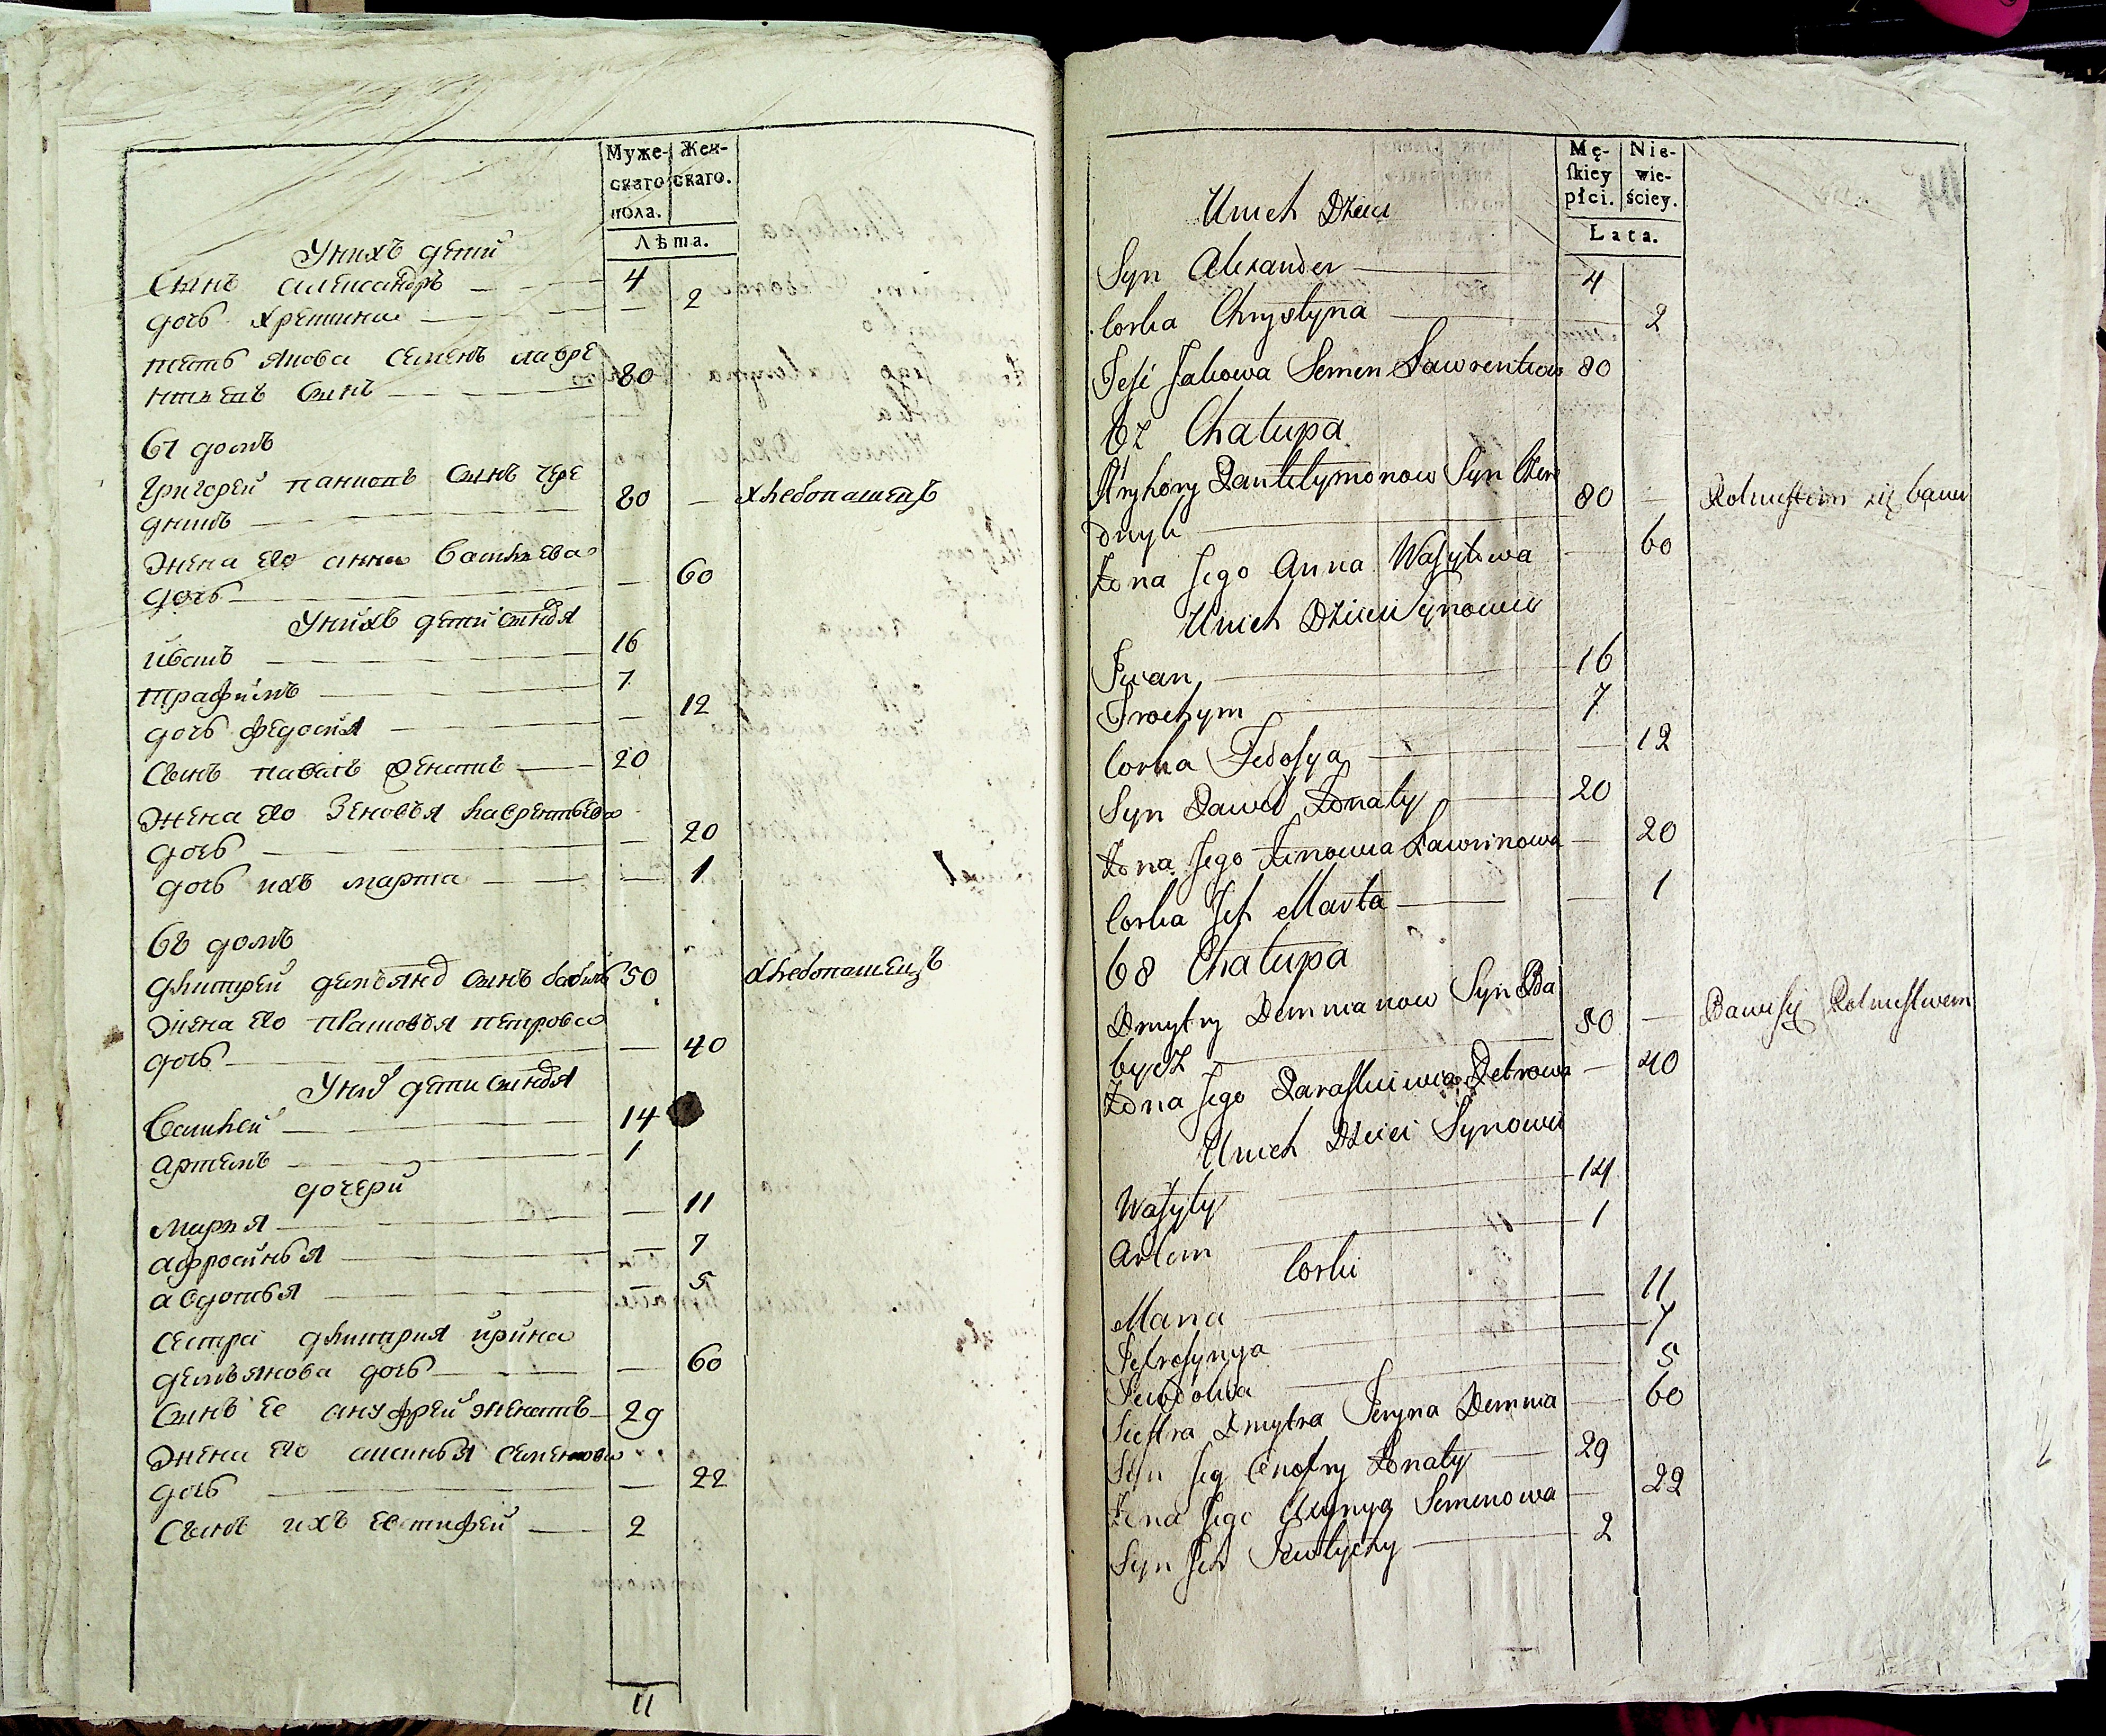 Муже- Жен-
скаго скаго.
пола.
Лѣта.
Унихъ дети
Сынъ александръ 4
дочь христина — 2
тесть якова семенъ лавре
нтьевъ сынъ 80
67 домъ
Григорей панкопъ сынъ чере
дникъ 80 — хлебопашецъ
жена его анна васильева
дочь — 60
Унихъ дети сыновя
иванъ 16
трафимъ 7
дочь федосия — 12
Сынъ павелъ женатъ 20
жена его Зеновья лаврентьева
дочь — 20
дочь ихъ марта — 1
68 домъ
дмитрей демьяновъ сынъ бабичь 50 хлебопашецъ
жена его парасковья петрова
дочь — 40
Унихъ дети сыновя
Василей 14
артемъ 1
дочери
марья — 11
афросинья — 7
авдотья — 5
сестра дмитрия ирина
демьянова дочь — 60
Сынъ ее ануфрей женатъ 29
жена его аксинья семенова
дочь — 22
Сынъ ихъ евтифей 2
11
Mę- Nie-
skiey wie-
płci. ściey.
Lata.
Unich Dzieci
Syn Alexander 4
Corka Chrystyna 2
Teść Jakowa Semen Lawrentiow 80
67 Chałupa
Hryhory Pantelymonow Syn Czere
dnyk 80 — Rolnictwem się bawi
Żona Jego Anna Wasylowa — 60
Unich Dzieci Synowie
Iwan 16
Trochym 7
Corka Fedosya — 12
Syn Paweł Żonaty 20
Żona Jego Zenowia Lawrinowa — 20
Corka Jch Marta — 1
68 Chałupa
Dmytry Demmianow Syn Ba
bycz 50 — Bawi się Rolnictwem
Żona Jego Paraskiewia Petrowa — 40
Unich Dzieci Synowie
Wasyly 14
Artem 1
Corki
Maria — 11
Jefrosynya 7
Jewdokia 5
Siestra Dmytra Jeryna Demmia — 60
Syn Jey Onofry Żonaty 29
Żona Jego Axenya Semenowa — 22
Syn Jch Jewtychy 2